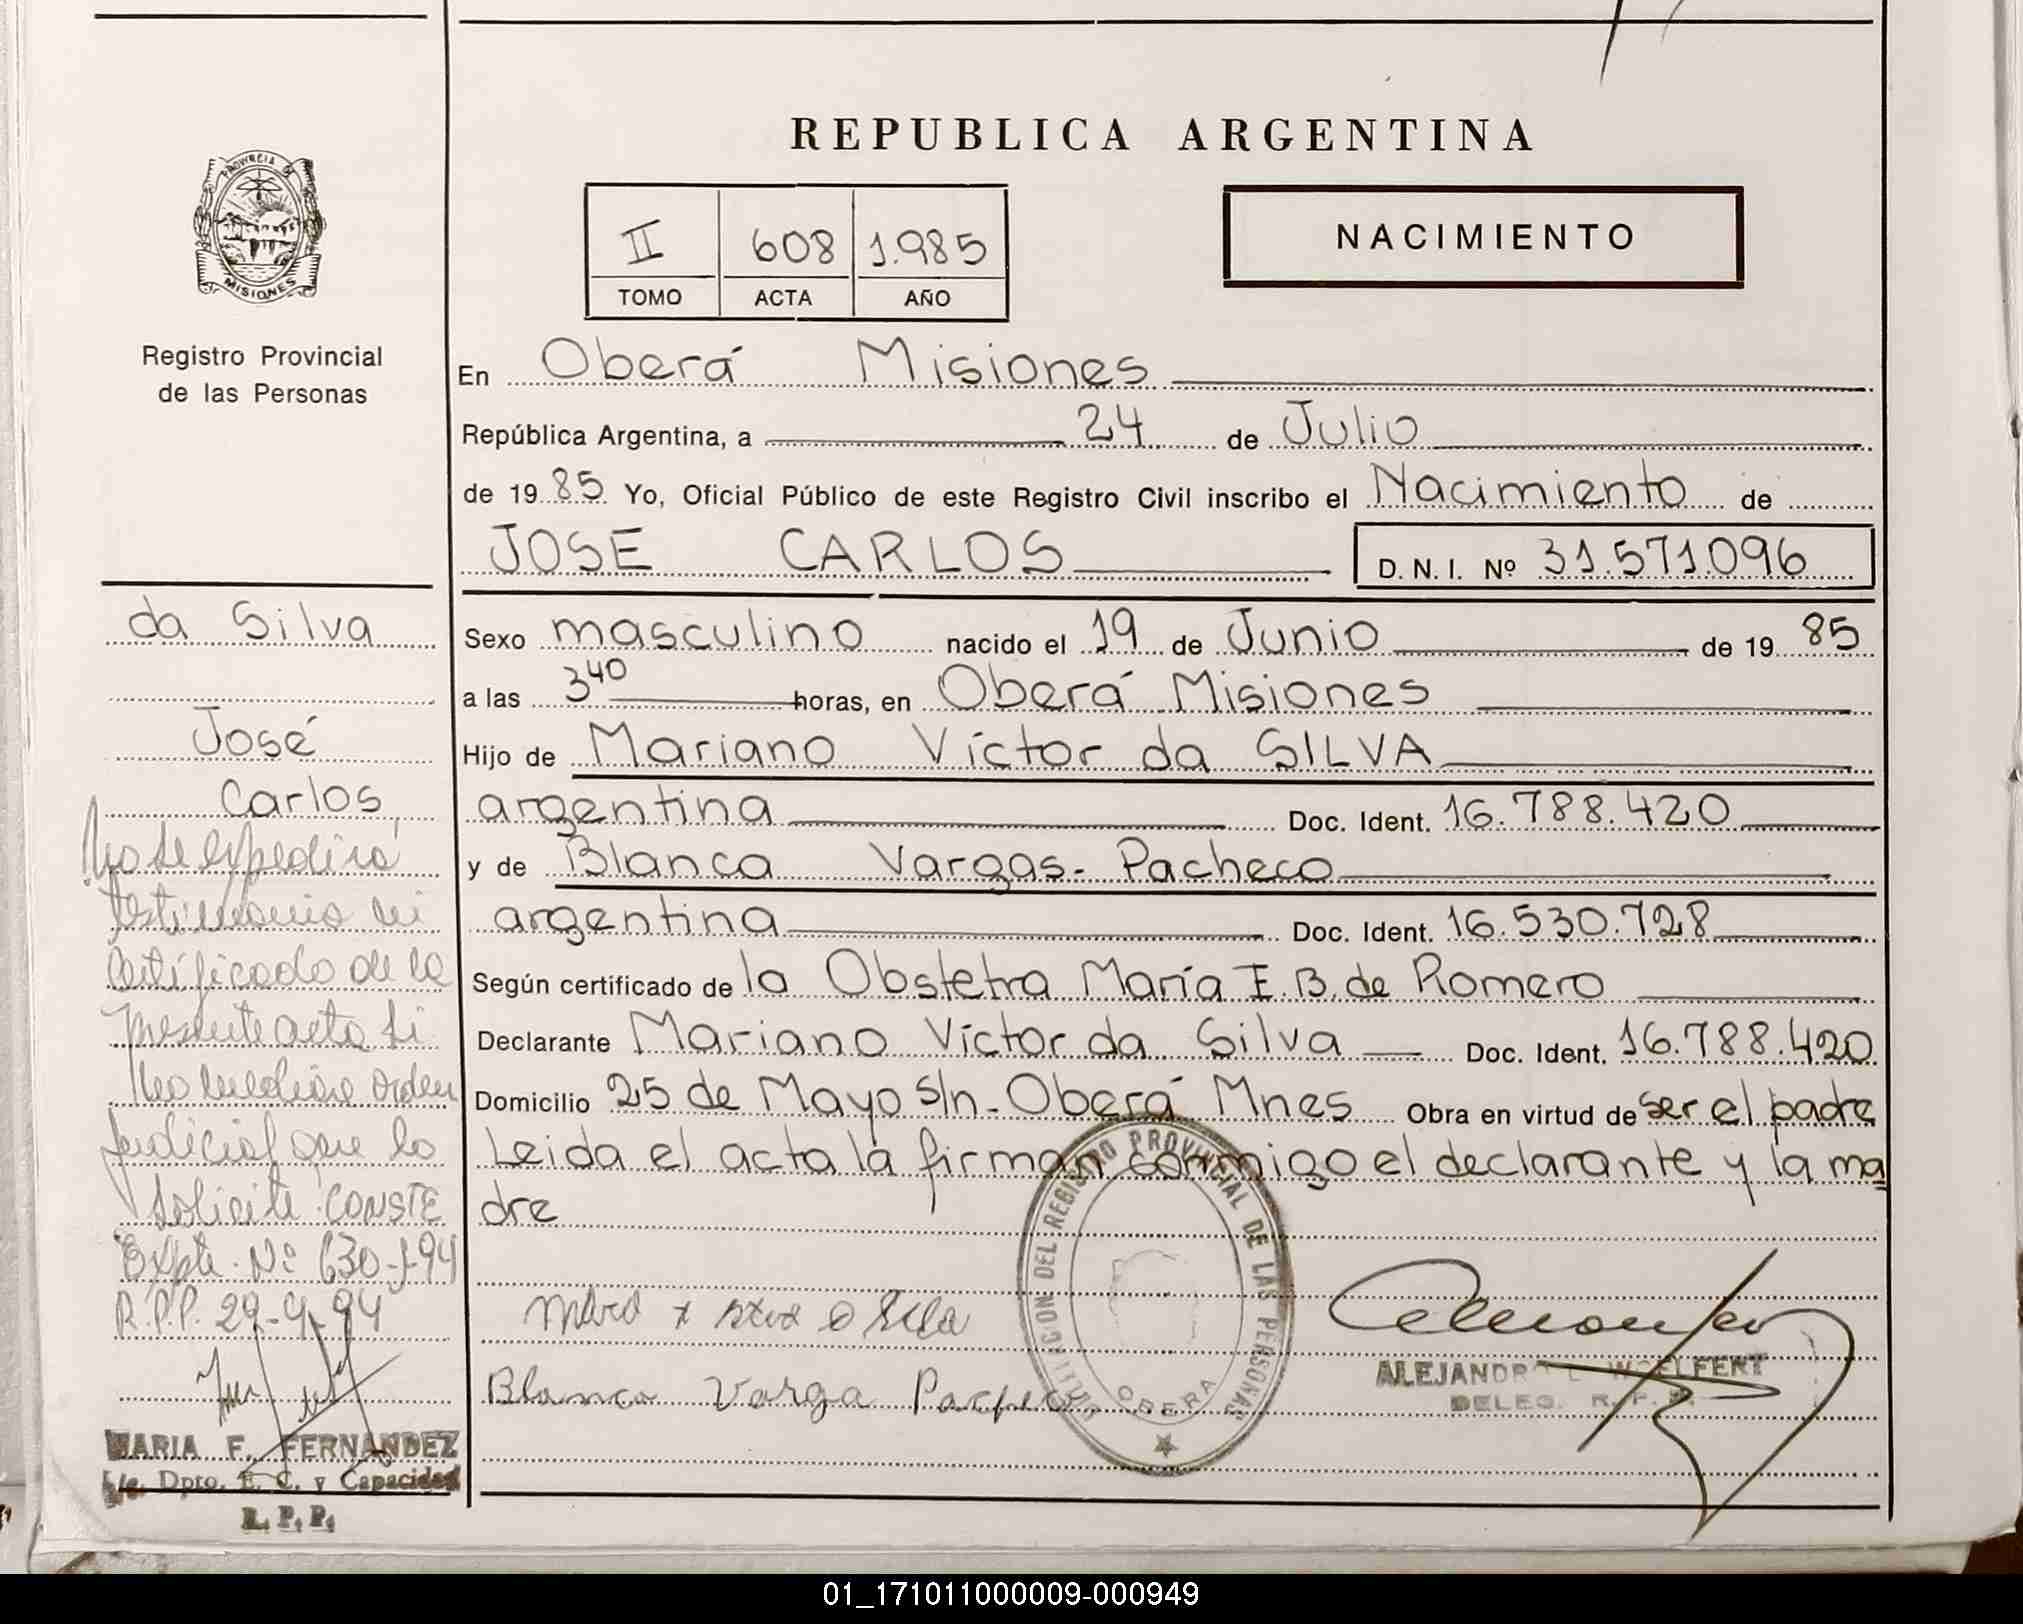 REPUBLICA ARGENTINA
PROVINCIA DE
MISIONES
Registro Provincial
de las Personas
II 608 1.985
TOMO ACTA AÑO
NACIMIENTO
En Oberá Misiones
República Argentina, a 24 de Julio
de 1985 Yo, Oficial Público de este Registro Civil inscribo el Nacimiento de
JOSE CARLOS D. N. I. Nº 31.571.096
Sexo masculino nacido el 19 de Junio de 19 85
a las 3 40 horas, en Oberá Misiones
Hijo de Mariano Víctor da SILVA
argentina Doc. Ident. 16.788.420
y de Blanca Vargas- Pacheco
argentina Doc. Ident. 16.530.728
Según certificado de la Obstetra María E. B. de Romero
Declarante Mariano Víctor da Silva Doc. Ident. 16.788.420
Domicilio 25 de Mayo s/n- Oberá Mnes Obra en virtud de ser el padre
Leida el acta la firman conmigo el declarante y la ma
dre
Blanca Varga Pacheco
DELEGACION DEL REGISTRO PROVINCIAL DE LAS PERSONAS
OBERA
ALEJANDR WOELFERT
DELEG. R. P. P.
da Silva
José
Carlos
No se expedirá
testimonio ni
certificado de la
presente acta si
no mediare orden
judicial que lo
solicite CONSTE
Expte. Nº 630-J-94
R.P.P. 29-4-94
MARIA F. FERNANDEZ
Dpto. E. C. y Capacidad
R. P. P.
01_171011000009-000949